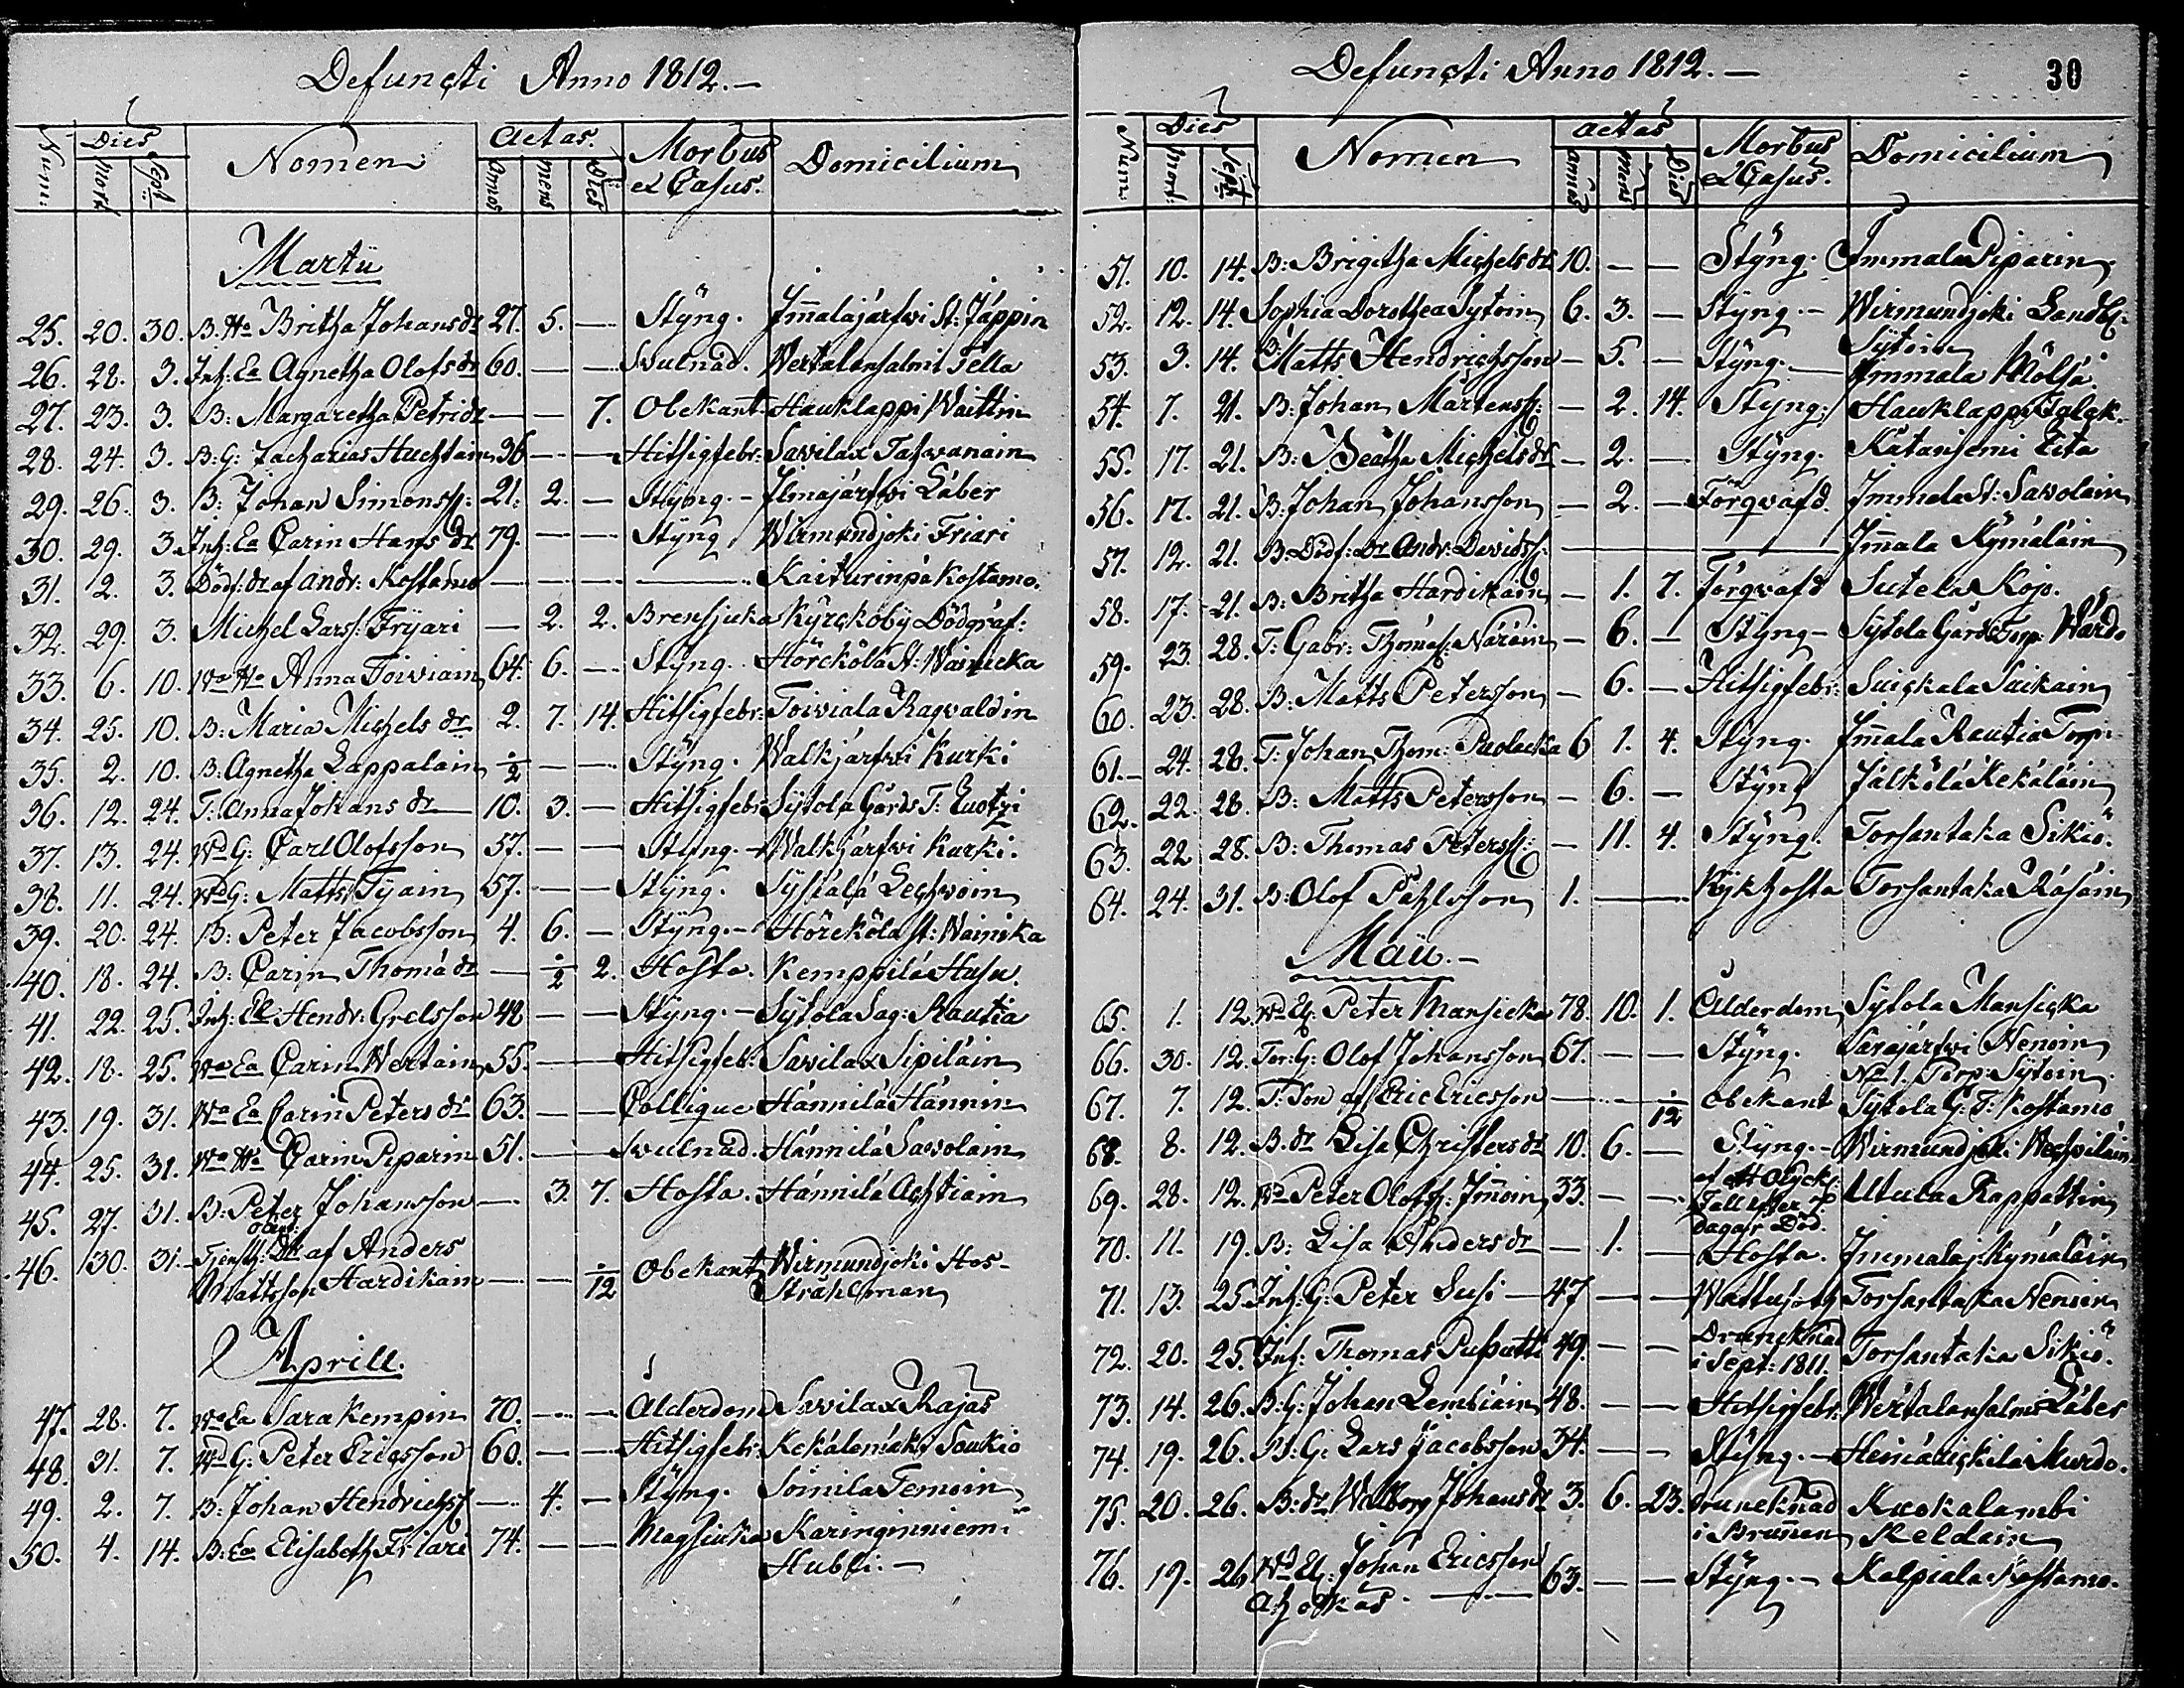 Defuncti Anno 1812.-
Num. Dies Mort Sept. Nomen Aetas. Annos Mens Dies Morbus et Casus. Domicilium
Martii
25. 20. 30. B. Ha Britha Johansdr 27. 5. — Styng. Immalajärfwi St: Jäppin
26. 22. 3. Inh: Ea Agnetha Olofsdr 60. — — Swulnad. Wertalansalmi Tella
27. 23. 3. B: Margaretha Petridr — — 7. Obekant Hauklappi Waittin
28. 24. 3. B. G: Zacharias Huchtain 36 — — Hitsigfebr: Sawilax Tahwanain
29. 26. 3. B: Johan Simonss: 21. 2. — Styng.- Ilmajärfwi Läber
30. 29. 3. Inh: Ea Carin Hans dr 79. — — Styng Wirmundjoki Friari
31. 2. 3. Dödf: dr af Andr: Kostamo — — — — Kaiturinpä Kostamo.
32. 29. 3. Michel Larss: Fryari — 2. 2. Brensjuka Kyrckoby Dödgräf:
33. 6. 10. Wa Ha Anna Toiviain 64. 6. — Styng. Hörckölä St: Wainicka
34. 25. 10. B: Maria Michels dr 2. 7. 14. Hitsigfebr. Toiviala Ragvaldin
35. 2. 10. B: Agnetha Lappalain ½ — — Styng. Walkjärfwi Kurki
36. 12. 24. T: Anna Johans dr 10. 3. — Hitsigfebr Sytola Gårds T:
37. 13. 24. Wd G: Carl Olofsson 57. — — Styng.- Walkjärfwi Kurki.
38. 11. 24. Wd G: Matts Tyain 57. — — Styng. Systälä Lechwoin
39. 20. 24. B: Peter Jacobsson 4. 6. — Styng.- Hörckölä St: Wainika
40. 18. 24. B: Carin Thomä dr — ½ 2. Hosta. Kemppilä Husu.
41. 22. 25. Inh: El Hendr: Grelsson 48 — — Styng.- Sytola Sag: Rautia
42. 18. 25. Wa Ea Carin Wertain 55. — — Hitsigfeb: Sawilax Sipiläin
43. 19. 31. Wa Ea Carin Peters dr 63. — — Collique Hännilä Hännin
44. 25. 31. Wa Ha Carin Piparin 51. — — Swulnad. Hännilä Sawolain
45. 27. 31. B: Peter Johansson — 3. 7. Hosta. Hännilä Achtiain
46. 30. 31. Tjensth: dr af Anders
Mattsson Hardikain — — 1/12 Obekant Wirmundjoki Hos-
Strahlman
Aprill.
47. 28. 7. Wa Ea Sara Kempin 70. — — Ålderdom Sawilax Rajas
48. 31. 7. Wd G: Peter Ericsson 60. — — Hitsigfebr. Kekäleniäki Soukio
49. 2. 7. B: Johan Hendrichss — 4. — Styng. Soimila Temoin
50. 4. 14. B: Ea Elisabeth Frilari 74. — — Magsiuka Karinginniemi
Hubli.-
Defuncti Anno 1812.-
30
Num Dies Mort: Sept Nomen Aetas annos mens Dies Morbus et Casus. Domicilium
51. 10. 14. B: Brigitha Michelsdr 10. — — Styng. Immala Piparin
52. 12. 14. Sophia Dorothea Sytoin 6. 3. — Styng.- Wirmundjoki Landb:
Sytoin
53. 3. 14. Matts Hendrichsson — 5. — Styng.- Immala Mölsä
54. 7. 21. B: Johan Mårtenss: — 2. 14. Styng: Hauklappi
55. 17. 21. B: Beatha Michelsdr — 2. — Styng. Kätansemi Eita
56. 17. 21. B: Johan Johansson — 2. — Förqvafd. Immala St: Sawolain
57. 12. 21. B: Dödf: Dr Andr: Davidss: — — — — Immala Kymäläin
58. 17. 21. B: Britha Hardikain — 1. 7. Förqvafd Sutela Kop.
59. 23. 28. T: Gabr: Thomas: Näräin — 6. — Styng- Sytola Gårds Torp: Wärdo
60. 23. 28. B: Matts Petersson — 6. — Hitsigfebr: Suickala Suikain
61.- 24. 28. T: Johan Thom: Paolacka 6 1. 4. Styng. Immala Rautia Torp:
62. 22. 28. B: Matts Petersson — 6. — Styng Jälkölä Kekäläin
63. 22 28. B: Thomas Peterss: — 11. 4. Styng. Torsantaka Sikiö.
64. 24. 31. B: Olof Påhlsson 1. — — Kykhosta Torsantaka Räsäin
Maii.-
65. 1. 12. Wd Eg: Peter Mansicka 78. 10. 1. Ålderdom Sytola Mansicka
66. 30. 12. Tor: G: Olof Johansson 67. — — Styng. Särajärfwi Nenoin
No 1. Torp: Sytoin.
67. 7. 12. T: Son af Eric Ericsson — — 1/12 Obekant Sytola G. T: Kostamo
68. 8. 12. B. dr Lisa Christersdr 10. 6. — Styng.- Wirmundjoki
69. 28. 12. Wd Peter Olofss: Immoin 33. — — af et Olyck:
Fall efter 7
dagar Död. Utula Rappattin
70. 11. 19. B: Lisa Anders dr — 1. — Hosta. Immalaj: Kymäläin
71. 13. 25 Inh: G: Peter Susi — 47 — — Wattusoth Torsantaka Nenoin
72. 20. 25. Inh: Thomas Puputti 49. — — Druncknad
i Sept: 1811. Torsantaka Sikiö.
73. 14. 26. B: G: Johan Lembiäin 48. — — Hitsigfebr: Wertalansalmi Läber
74. 19. 26. B: G: Lars Jacobsson 34. — — Styng.- Heinäickilä Murdo.
75. 20. 26. B: dr Walborg Johansdr 3. 6. 23. Druncknad Kuokalambi
i Brunnen Keldain
76. 19. 26 Wd Eg: Johan Ericsson 63. — — Styng.- Kalpiala Kostamo.
Ahokas.